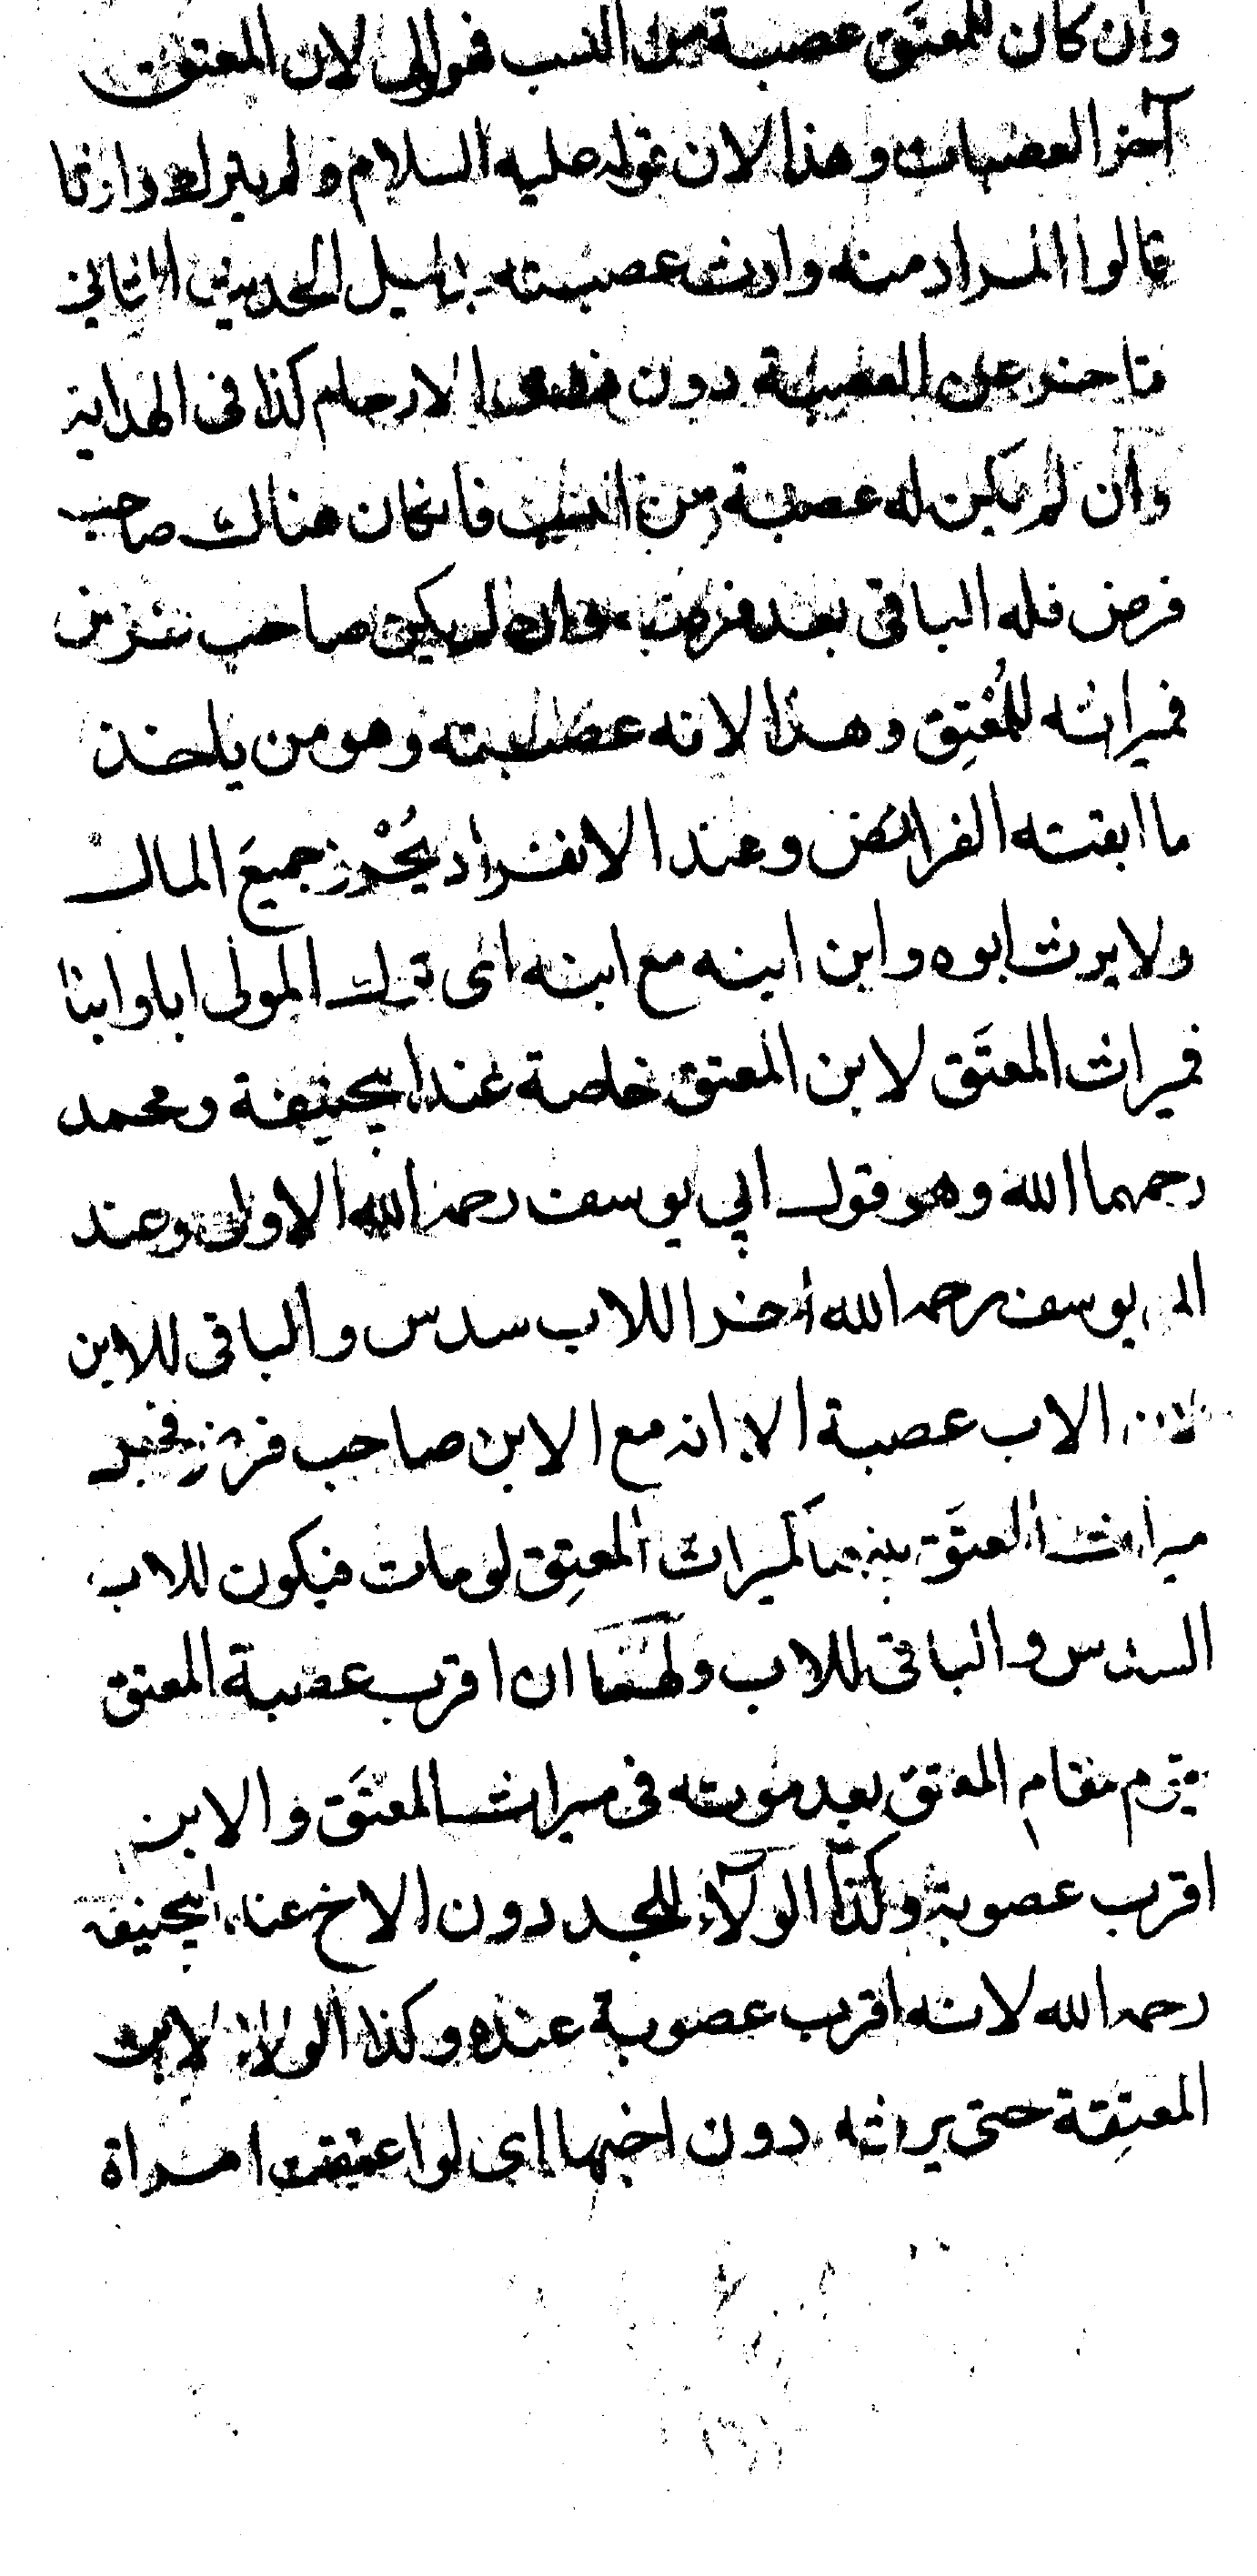 وان كان للمعتَق عصبة من النسب فهو اولى لان المعتق
آخر العصبات وهذا لان قوله عليه السلام ولم يترك وارثا
قالوا المراد منه وارث عصبته بدليل الحديث الثاني
تاخر عن العصبة دون ذوى الارحام كذا فى الهداية
وان لم يكن له عصبة من النسب فانكان هناك صاحب
فرض فله الباقى بعد فرضه وان لم يكن صاحب فرض
فميراثه للمُعْتِق وهذا لانه عصبته وهو من ياخذ
ما ابقته الفرائض وعند الانفراد يُحْرِز جميعَ المال
ولا يرث ابوه وابن ابنه مع ابنه اى ترك المولى ابا وابنا
فميراث المعتَق لابن المعتق خاصة عند ابيحنيفة ومحمد
رحمهما الله وهو قول ابي يوسف رحمه الله الاول وعند
ابى يوسف رحمه الله آخرا للاب سدس والباقى للابن
لان الاب عصبة الا انه مع الابن صاحب فرض فخير
ميراث المعتَق بينهما كميراث المعتِق لو مات فيكون للاب
السدس والباقى للاب ولهما ان اقرب عصبة المعتق
يقوم مقام المعتق بعد موته فى ميراث المعتَق والابن
اقرب عصوبة وكذا الولاء للجد دون الاخ عند ابيحنيفه
رحمه الله لانه اقرب عصوبة عنده وكذا الولاء لابن
المعتِقة حتى يرثه دون اخيها اى لو اعتقت امراة